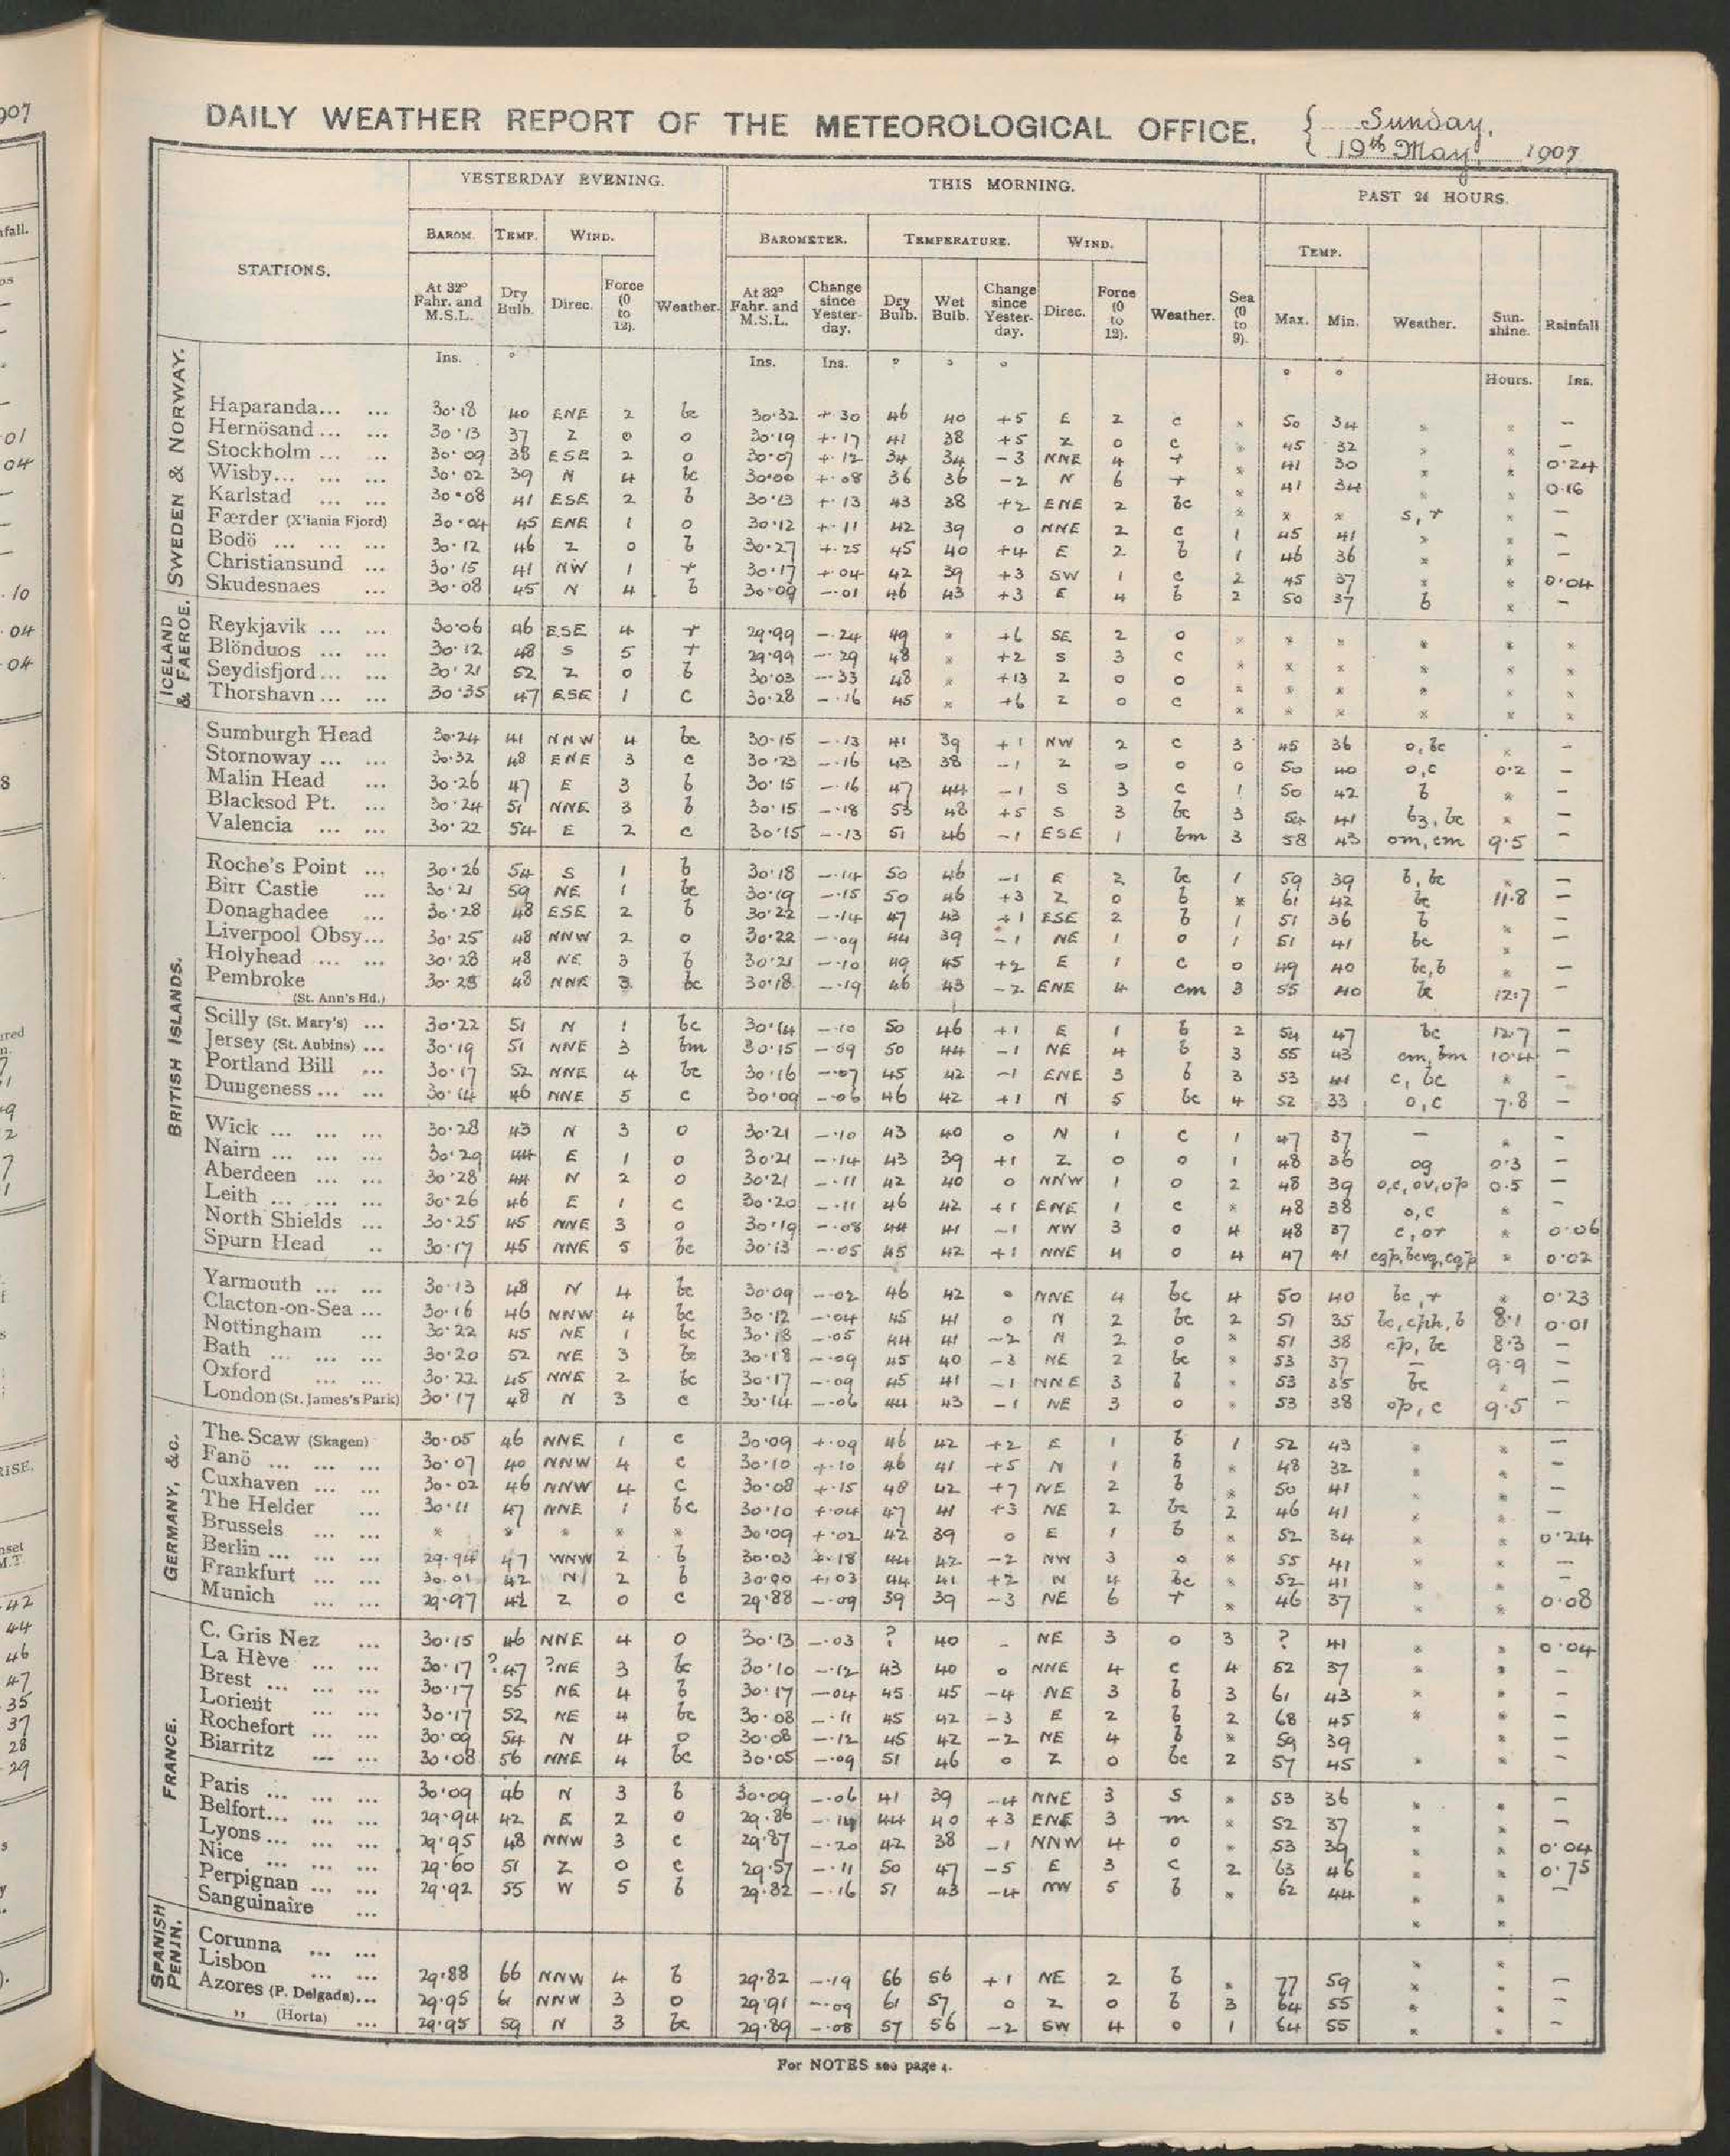 DAILY WEATHER REPORT OF THE METEOROLOGICAL OFFICE. { Sunday, 19th May, 1907
YESTERDAY EVENING. THIS MORNING. PAST 24 HOURS.
BAROM. TEMP. WIND. BAROMETER. TEMPERATURE. WIND. TEMP.
STATIONS. At 32° Fahr. and M.S.L. Dry Bulb. Direc. Force (0 to 12). Weather. At 32° Fahr. and M.S.L. Change since Yester-day. Dry Bulb. Wet Bulb. Change since Yester-day. Direc. Force (0 to 12). Weather. Sea (0 to 9). Max. Min. Weather. Sun-shine. Rainfall
Ins. ° Ins. Ins. ° ° ° ° ° Hours. Ins.
SWEDEN & NORWAY.
Haparanda... ... 30·18 40 ENE 2 bc 30·32 +·30 46 40 +5 E 2 c * 50 34 * * —
Hernösand ... ... 30·13 37 Z 0 o 30·19 +·17 41 38 +5 Z 0 c * 45 32 * * —
Stockholm ... ... 30·09 38 ESE 2 o 30·07 +·12 34 34 -3 NNE 4 r * 41 30 * * 0·24
Wisby... ... ... 30·02 39 N 4 bc 30·00 +·08 36 36 -2 N 6 r * 41 34 * * 0·16
Karlstad ... ... 30·08 41 ESE 2 b 30·13 +·13 43 38 +2 ENE 2 bc * * * s, r * —
Færder (X'iania Fjord) 30·04 45 ENE 1 o 30·12 +·11 42 39 0 NNE 2 c 1 45 41 * * —
Bodö ... ... ... 30·12 46 Z 0 b 30·27 +·25 45 40 +4 E 2 b 1 46 36 * * —
Christiansund ... 30·15 41 NW 1 r 30·17 +·04 42 39 +3 SW 1 c 2 45 37 * * 0·04
Skudesnaes ... 30·08 45 N 4 b 30·09 -·01 46 43 +3 E 4 b 2 50 37 b * —
ICELAND & FAEROE.
Reykjavik ... ... 30·06 46 ESE 4 r 29·99 -·24 49 * +6 SE 2 o * * * * * *
Blönduos ... ... 30·12 48 S 5 r 29·99 -·29 48 * +2 S 3 c * * * * * *
Seydisfjord... ... 30·21 52 Z 0 b 30·03 -·33 48 * +13 Z 0 o * * * * * *
Thorshavn ... ... 30·35 47 ESE 1 c 30·28 -·16 45 * +6 Z 0 c * * * * * *
BRITISH ISLANDS.
Sumburgh Head 30·24 41 NNW 4 bc 30·15 -·13 41 39 +1 NW 2 c 3 45 36 o, bc * —
Stornoway ... ... 30·32 48 ENE 3 c 30·23 -·16 43 38 -1 Z 0 o 0 50 40 o,c 0·2 —
Malin Head ... 30·26 47 E 3 b 30·15 -·16 47 44 -1 S 3 c 1 50 42 b * —
Blacksod Pt. ... 30·24 51 NNE 3 b 30·15 -·18 53 48 +5 S 3 bc 3 54 41 bz, bc * —
Valencia ... ... 30·22 54 E 2 c 30·15 -·13 51 46 -1 ESE 1 bm 3 58 43 om, cm 9·5 —
Roche's Point ... 30·26 54 S 1 b 30·18 -·14 50 46 -1 E 2 bc 1 59 39 b, bc * —
Birr Castle ... 30·21 59 NE 1 bc 30·19 -·15 50 46 +3 Z 0 b * 61 42 bc 11·8 —
Donaghadee ... 30·28 48 ESE 2 b 30·22 -·14 47 43 +1 ESE 2 b 1 51 36 b * —
Liverpool Obsy... 30·25 48 NNW 2 o 30·22 -·09 44 39 -1 NE 1 o 1 51 41 bc * —
Holyhead ... ... 30·28 48 NE 3 b 30·21 -·10 49 45 +2 E 1 c 0 49 40 bc, b * —
Pembroke 30·25 48 NNE 3 bc 30·18 -·19 46 43 -2 ENE 4 cm 3 55 40 bc 12·7 —
(St. Ann's Hd.)
Scilly (St. Mary's) ... 30·22 51 N 1 bc 30·14 -·10 50 46 +1 E 1 b 2 54 47 bc 12·7 —
Jersey (St. Aubins) ... 30·19 51 NNE 3 bm 30·15 -·09 50 44 -1 NE 4 b 3 55 43 cm, bm 10·4 —
Portland Bill ... 30·17 52 NNE 4 bc 30·16 -·07 45 42 -1 ENE 3 b 3 53 41 c, bc * —
Dungeness ... ... 30·14 46 NNE 5 c 30·09 -·06 46 42 +1 N 5 bc 4 52 33 o, c 7·8 —
Wick ... ... ... 30·28 43 N 3 o 30·21 -·10 43 40 0 N 1 c 1 47 37 — * —
Nairn ... ... ... 30·29 44 E 1 o 30·21 -·14 43 39 +1 Z 0 o 1 48 36 og 0·3 —
Aberdeen ... ... 30·28 44 N 2 o 30·21 -·11 42 40 0 NNW 1 o 2 48 39 o,c,ov,op 0·5 —
Leith ... ... ... 30·26 46 E 1 c 30·20 -·11 46 42 +1 ENE 1 c * 48 38 o,c * —
North Shields ... 30·25 45 NNE 3 o 30·19 -·08 44 41 -1 NW 3 o 4 48 37 c, or * 0·06
Spurn Head .. 30·17 45 NNE 5 bc 30·13 -·05 45 42 +1 NNE 4 o 4 47 41 cqp, bcvq, cqp * 0·02
Yarmouth ... ... 30·13 48 N 4 bc 30·09 -·02 46 42 0 NNE 4 bc 4 50 40 bc, r * 0·23
Clacton-on-Sea ... 30·16 46 NNW 4 bc 30·12 -·04 45 41 0 N 2 bc 2 51 35 bc, cph, b 8·1 0·01
Nottingham ... 30·22 45 NE 1 bc 30·18 -·05 44 41 -2 N 2 o * 51 38 cp, bc 8·3 —
Bath ... ... ... 30·20 52 NE 3 bc 30·18 -·09 45 40 -3 NE 2 bc * 53 37 — 9·9 —
Oxford ... ... 30·22 45 NNE 2 bc 30·17 -·09 45 41 -1 NNE 3 b * 53 35 bc * —
London (St. James's Park) 30·17 48 N 3 c 30·14 -·06 44 43 -1 NE 3 o * 53 38 op, c 9·5 —
GERMANY, &c.
The Scaw (Skagen) 30·05 46 NNE 1 c 30·09 +·09 46 42 +2 E 1 b 1 52 43 * * —
Fanö ... ... ... 30·07 40 NNW 4 c 30·10 +·10 46 41 +5 N 1 b * 48 32 * * —
Cuxhaven ... ... 30·02 46 NNW 4 c 30·08 +·15 48 42 +7 NE 2 b * 50 41 * * —
The Helder ... 30·11 47 NNE 1 bc 30·10 +·04 47 41 +3 NE 2 bc 2 46 41 * * —
Brussels ... ... * * * * * 30·09 +·02 42 39 0 E 1 b * 52 34 * * 0·24
Berlin ... ... ... 29·94 47 WNW 2 b 30·03 +·18 44 42 -2 NW 3 o * 55 41 * * —
Frankfurt ... ... 30·01 42 N 2 b 30·00 +·03 44 41 +2 N 4 bc * 52 41 * * —
Munich ... ... 29·97 42 Z 0 c 29·88 -·09 39 39 -3 NE 6 r * 46 37 * * 0·08
FRANCE.
C. Gris Nez ... 30·15 46 NNE 4 o 30·13 -·03 ? 40 - NE 3 o 3 ? 41 * * 0·04
La Hève ... ... 30·17 ?47 ?NE 3 bc 30·10 -·12 43 40 0 NNE 4 c 4 52 37 * * —
Brest ... ... ... 30·17 55 NE 4 b 30·17 -·04 45 45 -4 NE 3 b 3 61 43 * * —
Lorient ... ... 30·17 52 NE 4 bc 30·08 -·11 45 42 -3 E 2 b 2 68 45 * * —
Rochefort ... ... 30·09 54 N 4 o 30·08 -·12 45 42 -2 NE 4 b * 59 39 * —
Biarritz ... ... 30·08 56 NNE 4 bc 30·05 -·09 51 46 0 Z 0 bc 2 57 45 * * —
Paris ... ... ... 30·09 46 N 3 b 30·09 -·06 41 39 -4 NNE 3 s * 53 36 * * —
Belfort... ... ... 29·94 42 E 2 o 29·86 -·14 44 40 +3 ENE 3 m * 52 37 * * —
Lyons ... ... ... 29·95 48 NNW 3 c 29·87 -·20 42 38 -1 NNW 4 o * 53 39 * * 0·04
Nice ... ... ... 29·60 51 Z 0 c 29·57 -·11 50 47 -5 E 3 c 2 63 46 * * 0·75
Perpignan ... ... 29·92 55 W 5 b 29·82 -·16 51 43 -4 NW 5 b * 62 44 * * —
Sanguinaire ... * *
SPANISH PENIN.
Corunna ... ... * *
Lisbon ... ... 29·88 66 NNW 4 b 29·82 -·19 66 56 +1 NE 2 b * 77 59 * * —
Azores (P. Delgada)... 29·95 61 NNW 3 o 29·91 -·09 61 57 0 Z 0 b 3 64 55 * * —
,, (Horta) ... 29·95 59 N 3 bc 29·89 -·08 57 56 -2 SW 4 o 1 64 55 * * —
For NOTES see page 4.